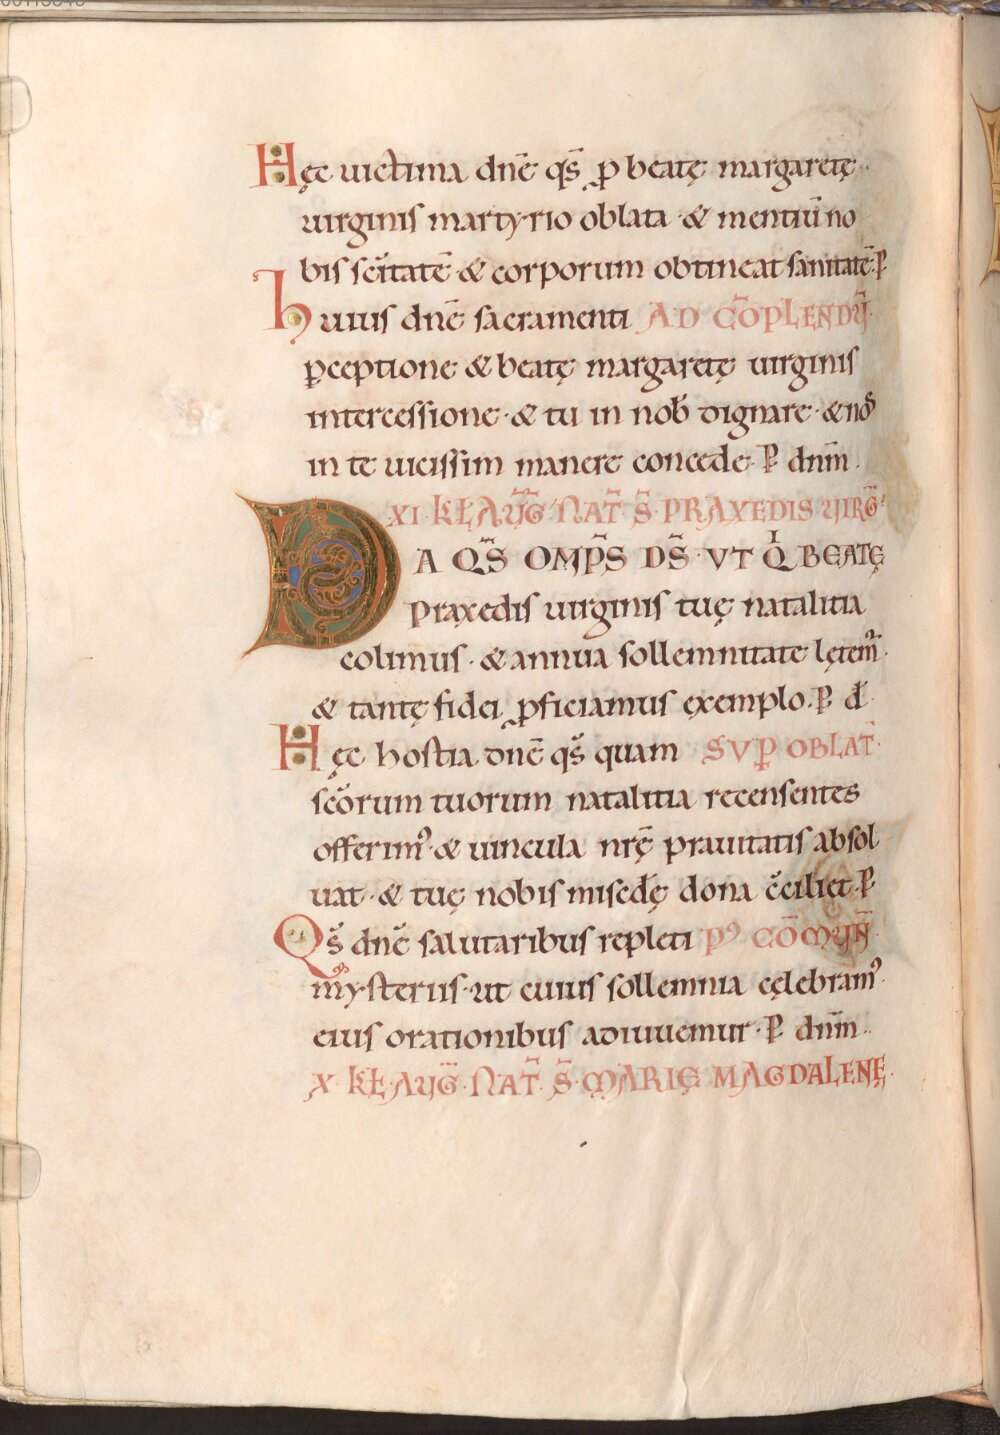 Hęc uictima dnē qs̄ ꝓ beatę margaretę
uirginis martyrio oblata · & mentiū no
bis scītatē & corporum obtineat sanitatē· P̄
huius dnē sacramenti AD CŌPLENDŪ
p̄ceptione & beatę margaretę uirginis
intercessione · & tu in nob̄ dignare · & nos̄
in te uicissim manere concede · P̄ dnm̄ .
XI · KŁ AUḠ · NAT̄ S̄ · PRAXEDIS UIRḠ
DA QS̄ OMP̄S DS̄ · VT Q̍ BEATĘ
praxedis uirginis tuę natalitia
colimus · & annua sollemnitate lętem̄ .
& tantę fidei ꝓficiamus exemplo . P̄ d̄
Hęc hostia dnē qs̄ quam SVP̄ OBLAT̄
scōrum tuorum natalitia recensentes
offerimꝰ · & uincula nrę̄ prauitatis absol
uat · & tuę nobis misēdę dona c̄ciliet · P̄
Qs̄ dnē salutaribus repleti Pꝰ CŌMUN̄
mysteriis · ut cuius sollemnia cęlebramꝰ
eius orationibus adiuuemur · P̄ dnm̄ .
X · KŁ AUḠ · NAT̄ · S̄ · MARIĘ MAGDALENĘ .